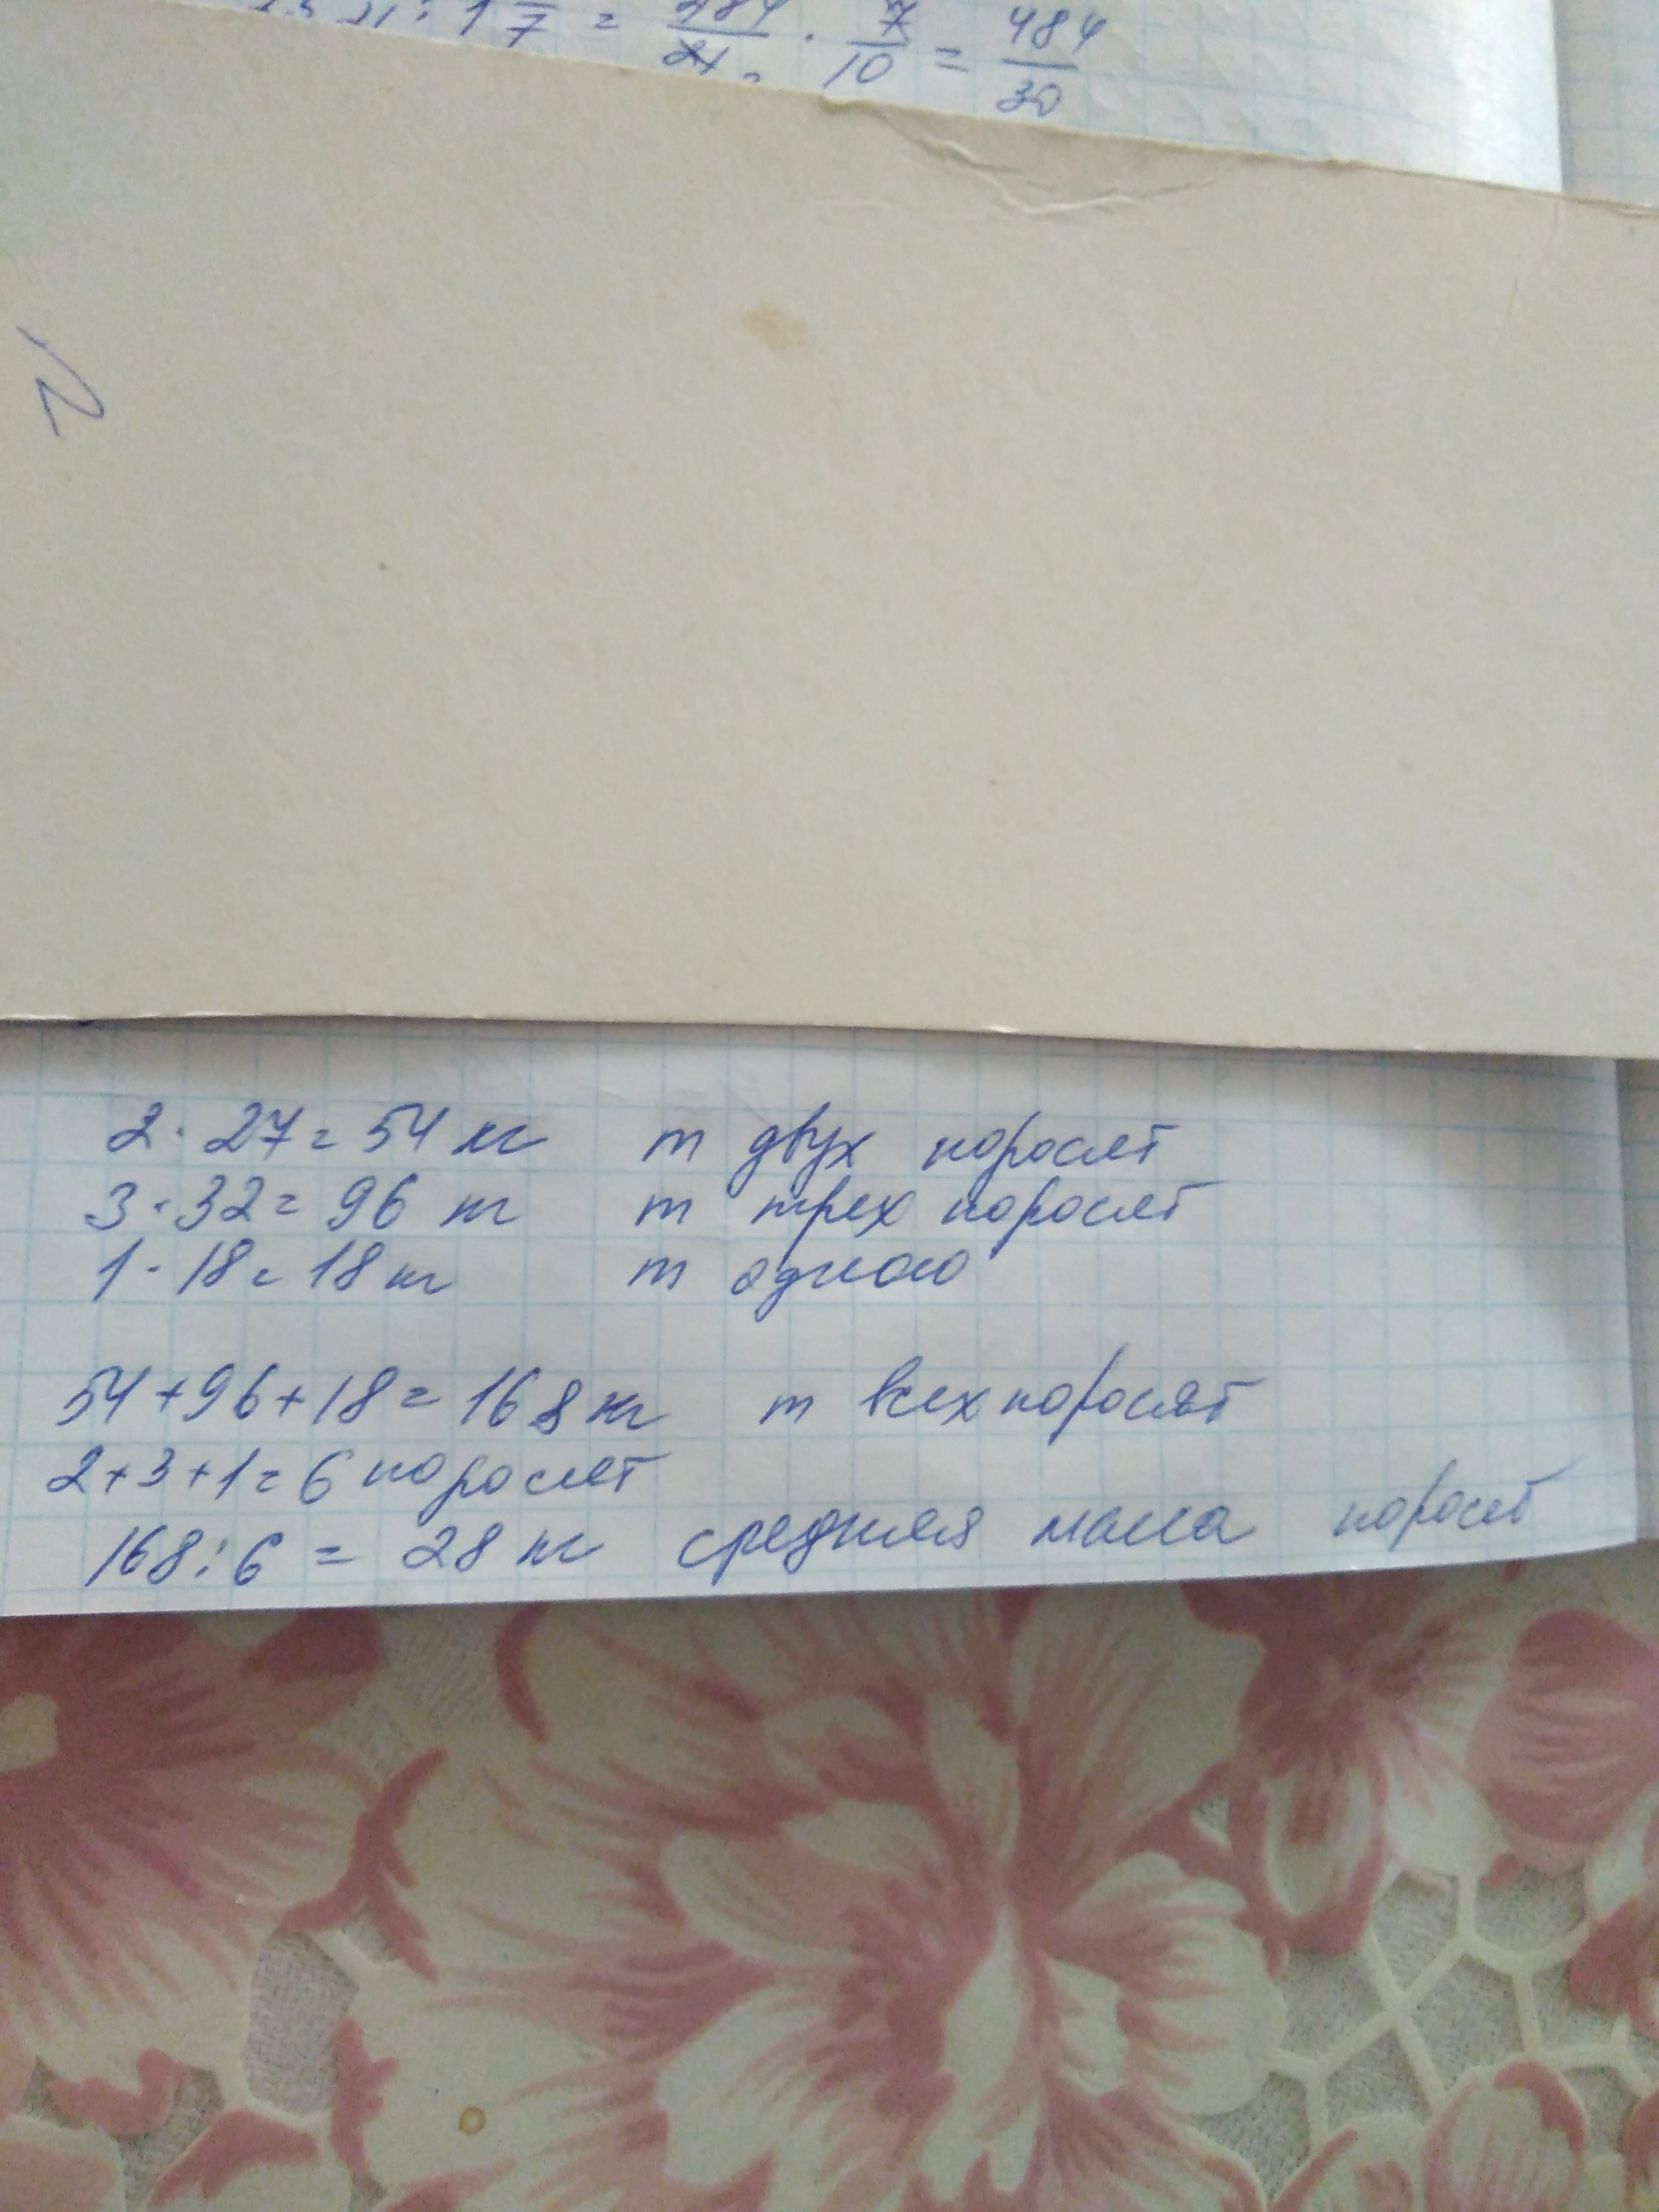 : 1 /7 = 484/21 · 7/10 = 484/30
2 · 27 = 54 кг m двух поросят
3 · 32 = 96 кг m трех поросят
1 · 18 = 18 кг m одного
54 + 96 + 18 = 168 кг m всех поросят
2 + 3 + 1 = 6 поросят
168 : 6 = 28 кг средняя масса поросят